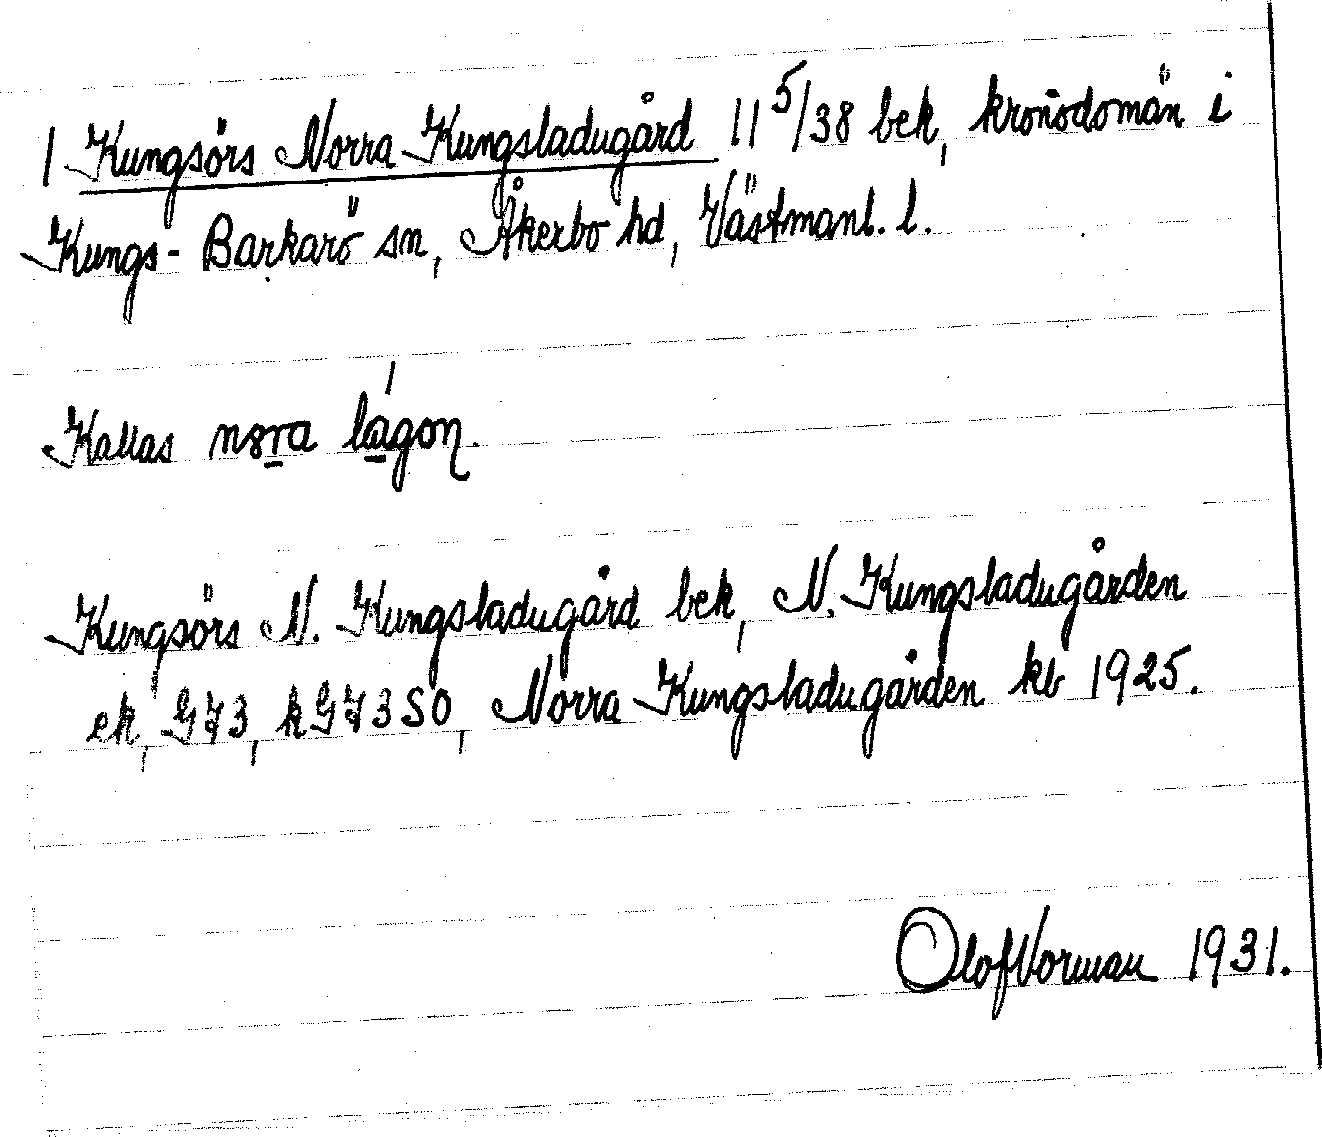 1 Kungsörs Norra Kungsladugård 11 5/38 bek, kronodomän i
Kungs-Barkarö sn, Åkerbo hd, Västmanl. l.
Kallas nora lágon.
Kungsörs N. Kungsladugård bek, N. Kungsladugården
ek, G73, kG73SO, Norra Kungsladugården kb 1925.
Olof Norman 1931.